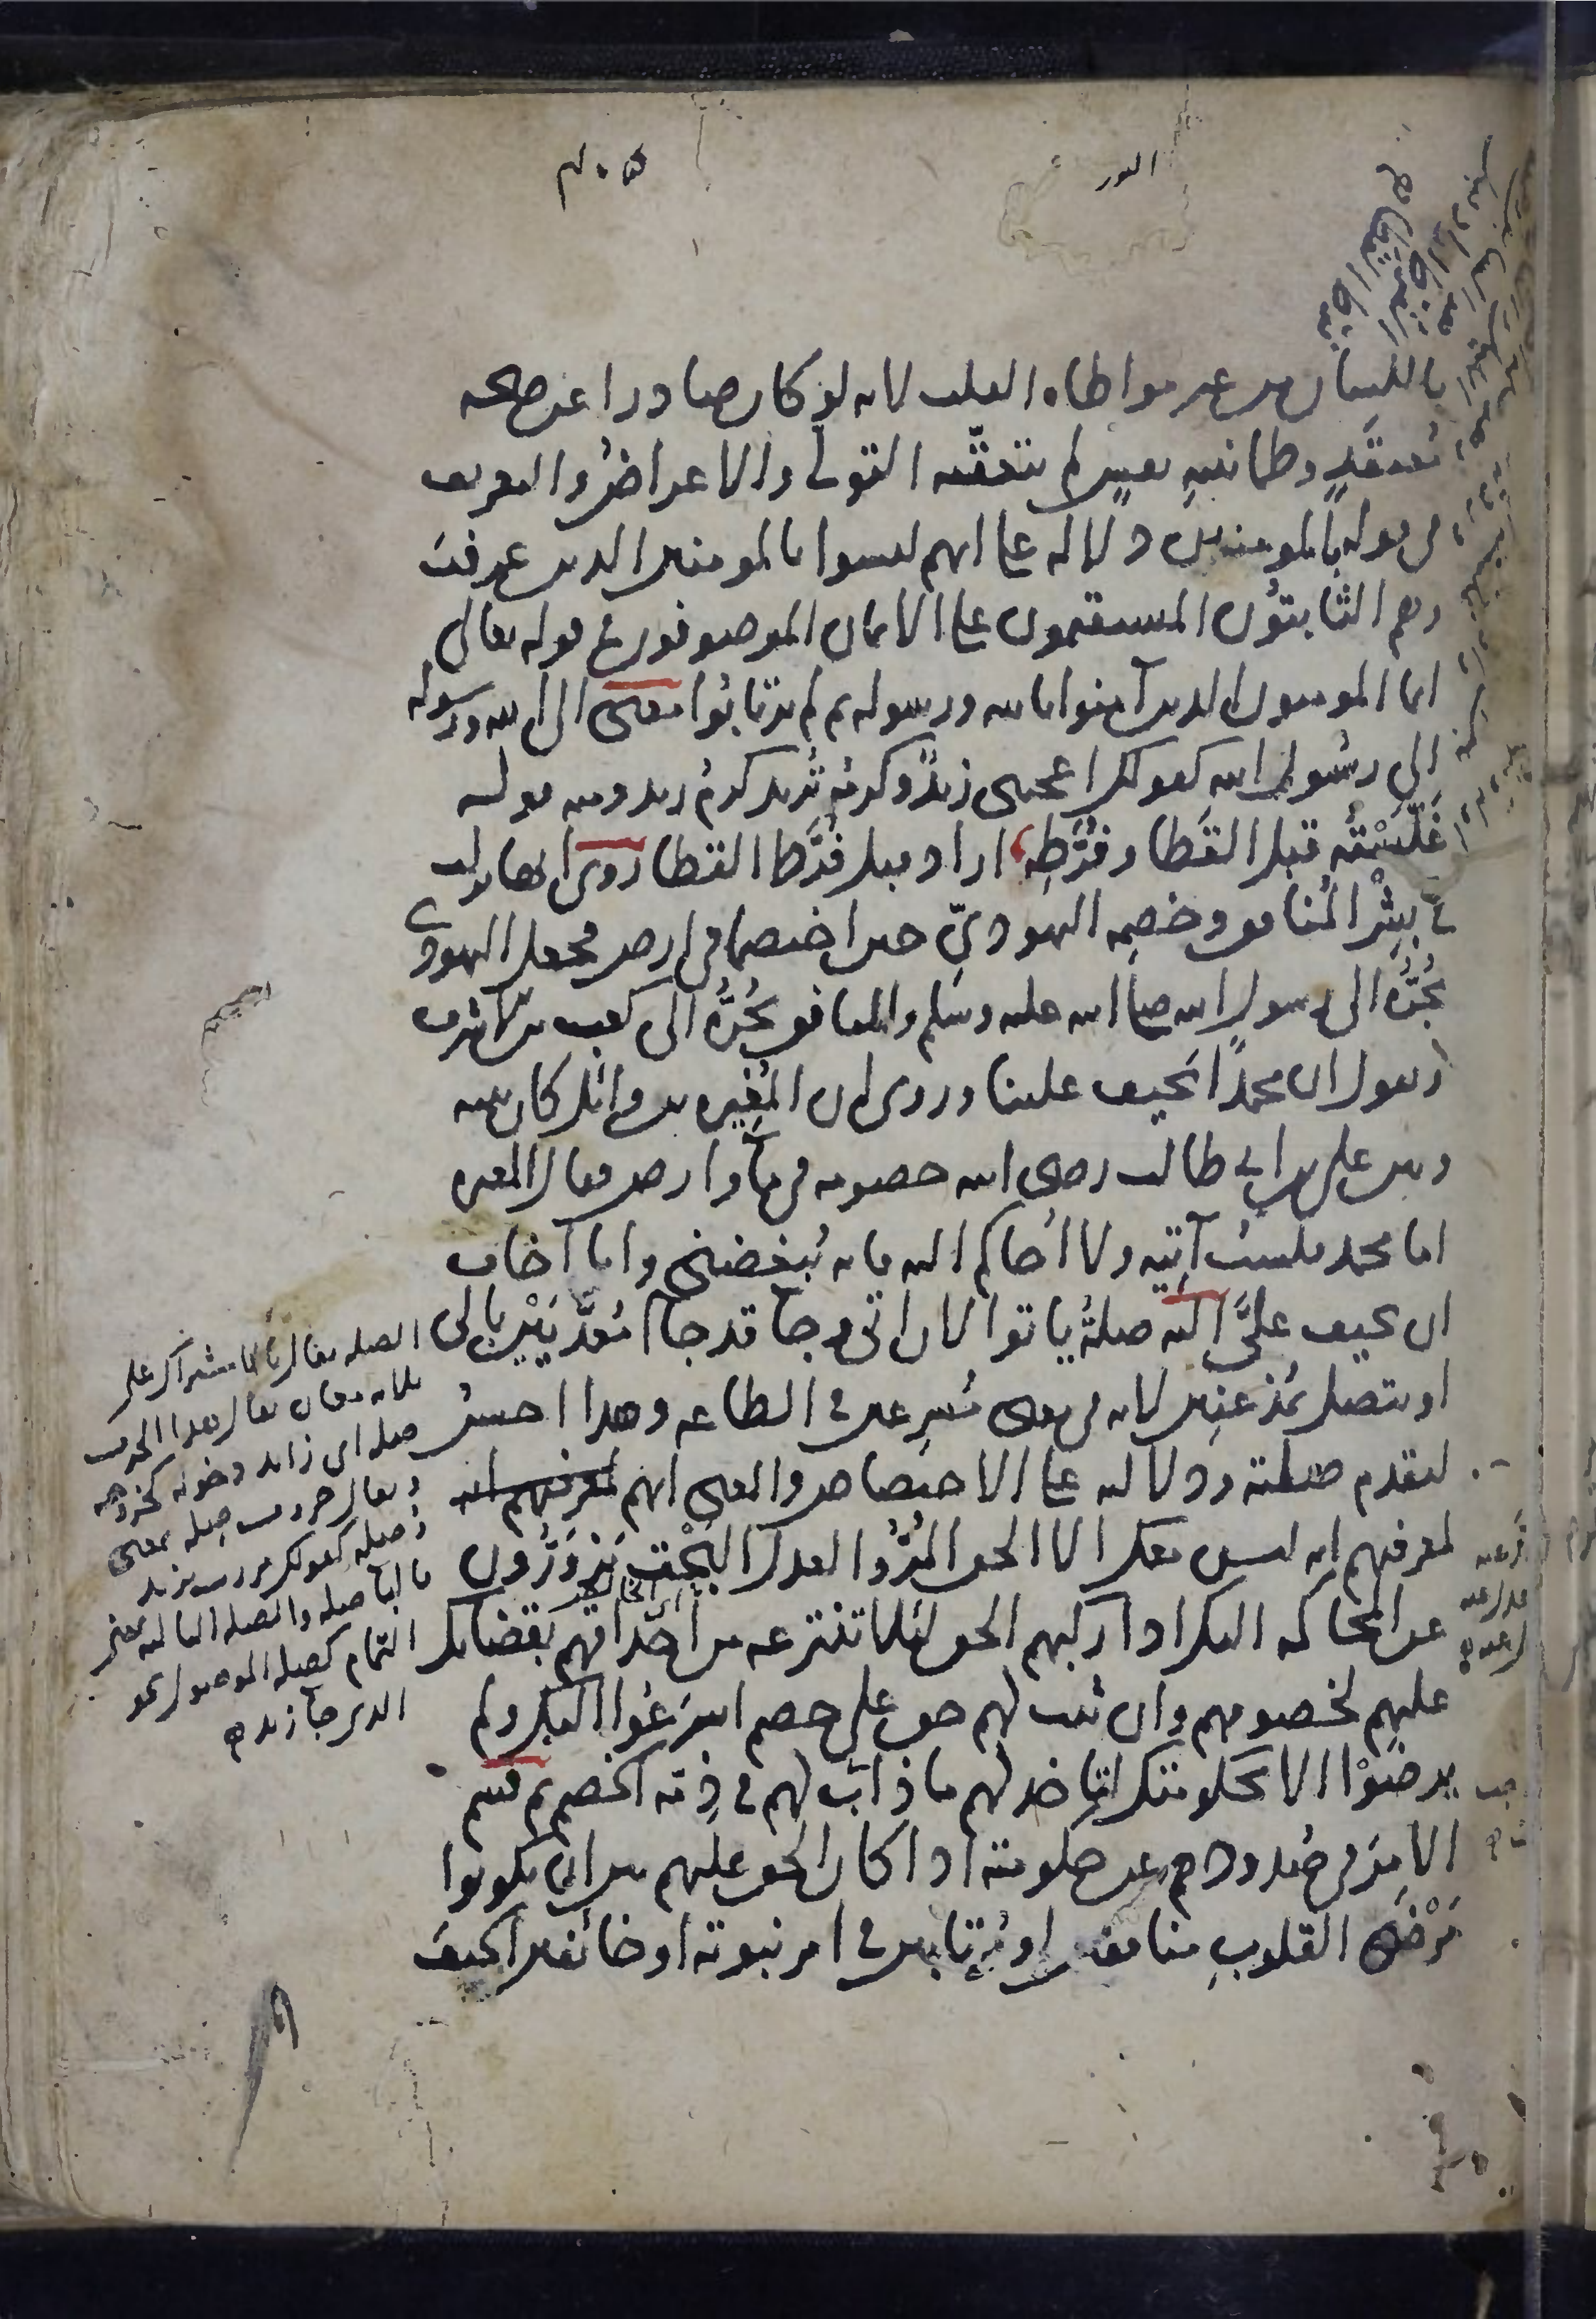 النور
باللسان من غير مواطاه القلب لانه لو كان صادرا عن صحه
معتقَدٍ وطمانينهِ نفسٍ لم يتعقّبه التولى والاعراض والتعريف
فى قوله بالمومنين دلاله على انهم ليسوا بالمومنين الذين عرفتَ
وهم الثابتون المستقيمون على الايمان الموصوفون فى قوله تعالى
انما المومنون الذين آمنوا بالله ورسوله ثم لم يرتابوا معنى الى الله ورسوله
الى رسول الله كقولك اعجبنى زيدٌ وكرمُه تُريد كرمُ زيد ومنه قوله
غَلَّسْتُه قبل القَطا وفُرَّطِه اراد قبل فُرَّط القطا روى انها نزلت
فى بِشْر المُنافق وخصمِه اليهودىّ حين اختصما فى ارض فجعل اليهودى
يجُرُّه الى رسول الله صلى الله عليه وسلم والمنافق يجُرُّه الى كعب بن الاشرف
ويقول ان محمدًا يحيف علينا وروى ان المُغِيره بن وائل كان بينه
وبين على بن ابى طالب رضى الله خصومه فى مآ وارض فقال المغيره
اما محمد فلستُ آتِيه ولا أُحاكم اليه فانه يُبغضنى وانا اخاف
ان يحيف علىَّ اليه صلةُ ياتوا لان اتى وجآ قد جاآ مُعدَّيَيْن بالى
او يتصل بمُذعِنين لانه فى معنى مُسرِعين فى الطاعه وهذا احسنُ
لتقدم صلته ودلالته على الاختصاص والمعنى انهم لمعرفتهم انه
لمعرفتهم انه ليس معك الا الحق المُرُّ والعدل البَحْت يَزوَرُّون
عن المحاكمه اليك اذا ركبهم الحق لئلا تنتزعه من احداقهم بقضائك
عليهم لخصومهم وان ثبت لهم حق على خصم اسرَعُوا اليك ولم
يرضَوْا الا بحكومتك لتاخذ لهم ما ذابَ لهم فى ذِمّه الخصم ثم قسم
الامرَ فى صُدودهم عن حكومته اذا كان الحق عليهم بين ان يكونوا
مَرْضَى القلوبِ منافقين او مُرتابين فى امر نبوته او خائفين الحيفَ
الصله يقال بالاشتراك على
ثلاثه معان يقال هذا الحرف
صله اى زايد دخوله كخروجه
ويقال حروف صله بمعنى
وُصلِه كقولك مررت بزيد
فالبا صله والصله الثالثه بمعنى
التمام كصله الموصول نحو
الذى جآ زيد